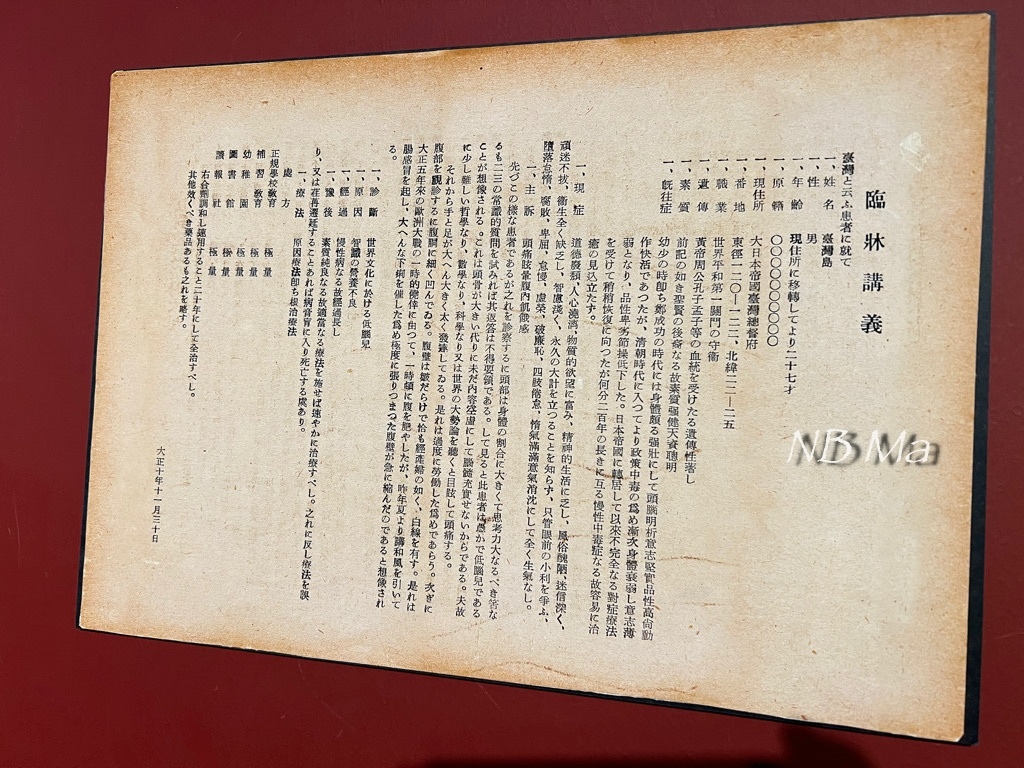 臨牀講義
臺灣と云ふ患者に就て
一、姓名　臺灣島
一、性　男
一、年齡　現住所に移轉してより二十七才
一、原籍　〇〇〇〇〇〇〇〇〇
一、現住所　大日本帝國臺灣總督府
一、番地　東徑一二〇—一二二、北緯二二—二五
一、職業　世界平和第一關門の守衞
一、遺傳　黃帝周公孔子孟子等の血統を受けたる遺傳性著し
一、素質　前記の如き聖賢の後裔なる故素質强健天資聰明
一、旣往症　幼少の時卽ち鄭成功の時代には身體頗る强壯にして頭腦明析意志堅實品性高尙動
作快活であつたが、淸朝時代に入つてより政策中毒の爲め漸次身體衰弱し意志薄
弱となり、品性卑劣節操低下した。日本帝國に轉居して以來不完全なる對症療法
を受けて稍稍恢復に向つたが何分二百年の長きに亙る慢性中毒症なる故容易に治
癒の見込立たず。
一、現症　道德廢頽人心澆漓、物質的欲望に富み、精神的生活に乏し、風俗醜陋、迷信深く、
頑迷不拔、衞生全く缺乏し、智慮淺く、永久の大計を立つることを知らず、只管眼前の小利を爭ふ、
墮落怠惰、腐敗、卑屈、怠慢、虛榮、破廉恥、四肢倦怠、惰氣滿滿意氣消沈にして全く生氣なし。
一、主訴　頭痛眩暈腹內飢餓感
先づこの樣な患者であるが之れを診察するに頭部は身體の割合に大きくて思考力大なるべき筈な
るも二三の常識的質問を試みれば其返答は不得要領である。して見ると此患者は愚かで低腦兒である
ことが想像される。これは頭骨が大きい代りに未だ內容空虛にして腦髓充實せないからである。夫故
に少し難しい哲學なり、數學なり、科學なり又は世界の大勢論を聽くと目眩して頭痛する。
それから手と足が大へん大きく太く發達してゐる。是れは過度に勞働した爲めであらう。次ぎに
腹部を觀診するに腹腸に細く凹んでゐる。腹壁は皺だらけで恰も經產婦の如く、白線を有す。是れは
大正五年來の歐洲大戰の一時的僥倖に由つて、一時頗に腹を肥やしたが、昨年夏より講和風を引いて
腸感冒を起し、大へんな下痢を催した爲め極度に張りつまつた腹壁が急に縮んだのであると想像され
る。
一、診斷　世界文化に於ける低腦兒
一、原因　智識の營養不良
一、經過　慢性病なる故經過長し
一、豫後　素質純良なる故適當なる療法を施せば速やかに治療すべし。之れに反し療法を誤
り、又は荏苒遷延することあれば病膏肓に入り死亡する虞あり。
一、療法　原因療法卽ち根治療法
處方
正規學校敎育　極量
補習敎育　極量
幼稚園　極量
圖書館　極量
讀報社　極量
右合劑調和し連用すること二十年にして全治すべし。
其他效くべき藥品あるも之れを略す。
大正十年十一月三十日
NB Ma